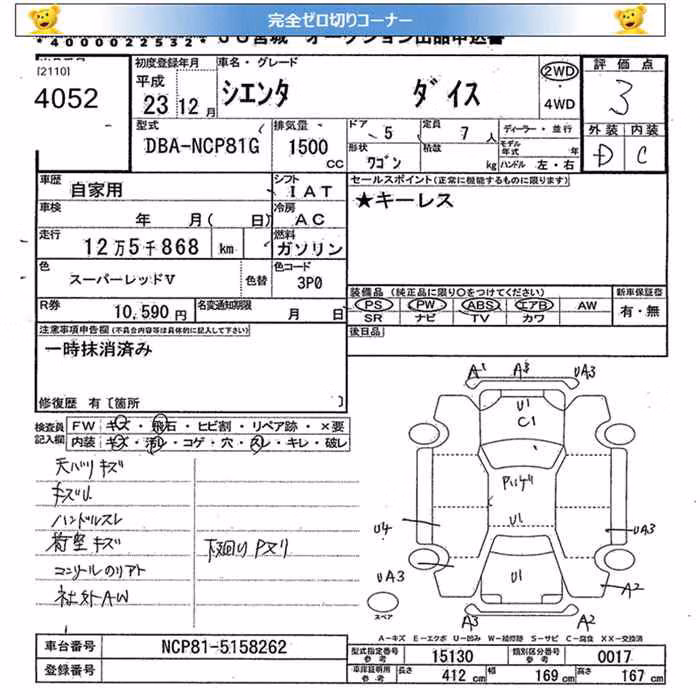 完全ゼロ切りコーナー
*4000022532* JU宮城 オークション出品申込書
[2110]
4052
初度登録年月
平成
23 12月
車名・グレード
シエンタ ダイス
2WD
・
4WD
評価点
3
外装 内装
D C
型式
DBA-NCP81G
排気量
1500
CC
ドア 5
定員 7人
形状 ワゴン
積載 kg
ディーラー・並行
モデル年式 年
ハンドル 左・右
車歴 自家用
シフト IAT
車検 年 月( 日)
冷房 AC
走行 12万5千868 km
燃料 ガソリン
色 スーパーレッドV
色替
色コード 3P0
R券 10,590円
名変通知期限 月 日
セールスポイント(正常に機能するものに限ります)
★キーレス
装備品 (純正品に限り〇をつけてください)
PS PW ABS エアB AW
SR ナビ TV カワ
新車保証書
有・無
後日品
注意事項申告欄(不具合内容等は具体的に記入して下さい)
一時抹消済み
修復歴 有〔箇所 〕
検査員記入欄
FW キズ・飛石・ヒビ割・リペア跡・×要
内装 キズ・汚れ・コゲ・穴・スレ・キレ・破レ
天バリキズ
キズU
ハンドルスレ
荷室キズ
コンソールのリアト
社外AW
下廻りPヌリ
A1 A3 UA3
U1
C1
Pハゲ
U1
U4
UA3
UA3
U1
A2
A3 A2
スペア
A-キズ E-エクボ U-凹み W-補修跡 S-サビ C-腐食 XX-交換済
車台番号 NCP81-5158262
登録番号
型式指定番号 参考 15130
類別区分番号 参考 0017
車庫証明用 参考 長さ 412 cm 幅 169 cm 高さ 167 cm